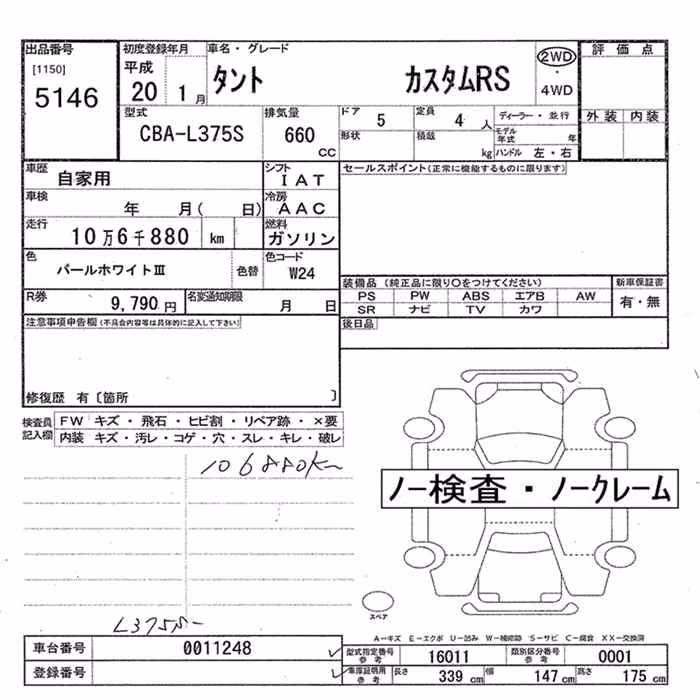 出品番号 初度登録年月 車名・グレード 評価点
[1150] 平成 タント カスタムRS 2WD
5146 20 1月 ・ 4WD
型式 排気量 ドア 5 定員 4人 ディーラー・並行 外装 内装
CBA-L375S 660 cc 形状 積載 kg モデル年式 年
ハンドル 左・右
車歴 自家用 シフト IAT セールスポイント(正常に機能するものに限ります)
車検 年 月( 日) 冷房 AAC
走行 10万6千880 km 燃料 ガソリン
色 パールホワイトⅢ 色替 色コード W24
装備品 (純正品に限り○をつけてください) 新車保証書
PS PW ABS エアB AW 有・無
SR ナビ TV カワ
R券 9,790円 名変通知期限 月 日
後日品
注意事項申告欄(不具合内容等は具体的に記入して下さい)
修復歴 有〔箇所 〕
検査員記入欄 FW キズ・飛石・ヒビ割・リペア跡・×要
内装 キズ・汚レ・コゲ・穴・スレ・キレ・破レ
106880K
ノー検査・ノークレーム
スペア
L375S-
A-キズ E-エクボ U-凹み W-補修跡 S-サビ C-腐食 XX-交換済
車台番号 0011248 型式指定番号 参考 16011 類別区分番号 参考 0001
登録番号 車庫証明用 参考 長さ 339cm 幅 147cm 高さ 175cm